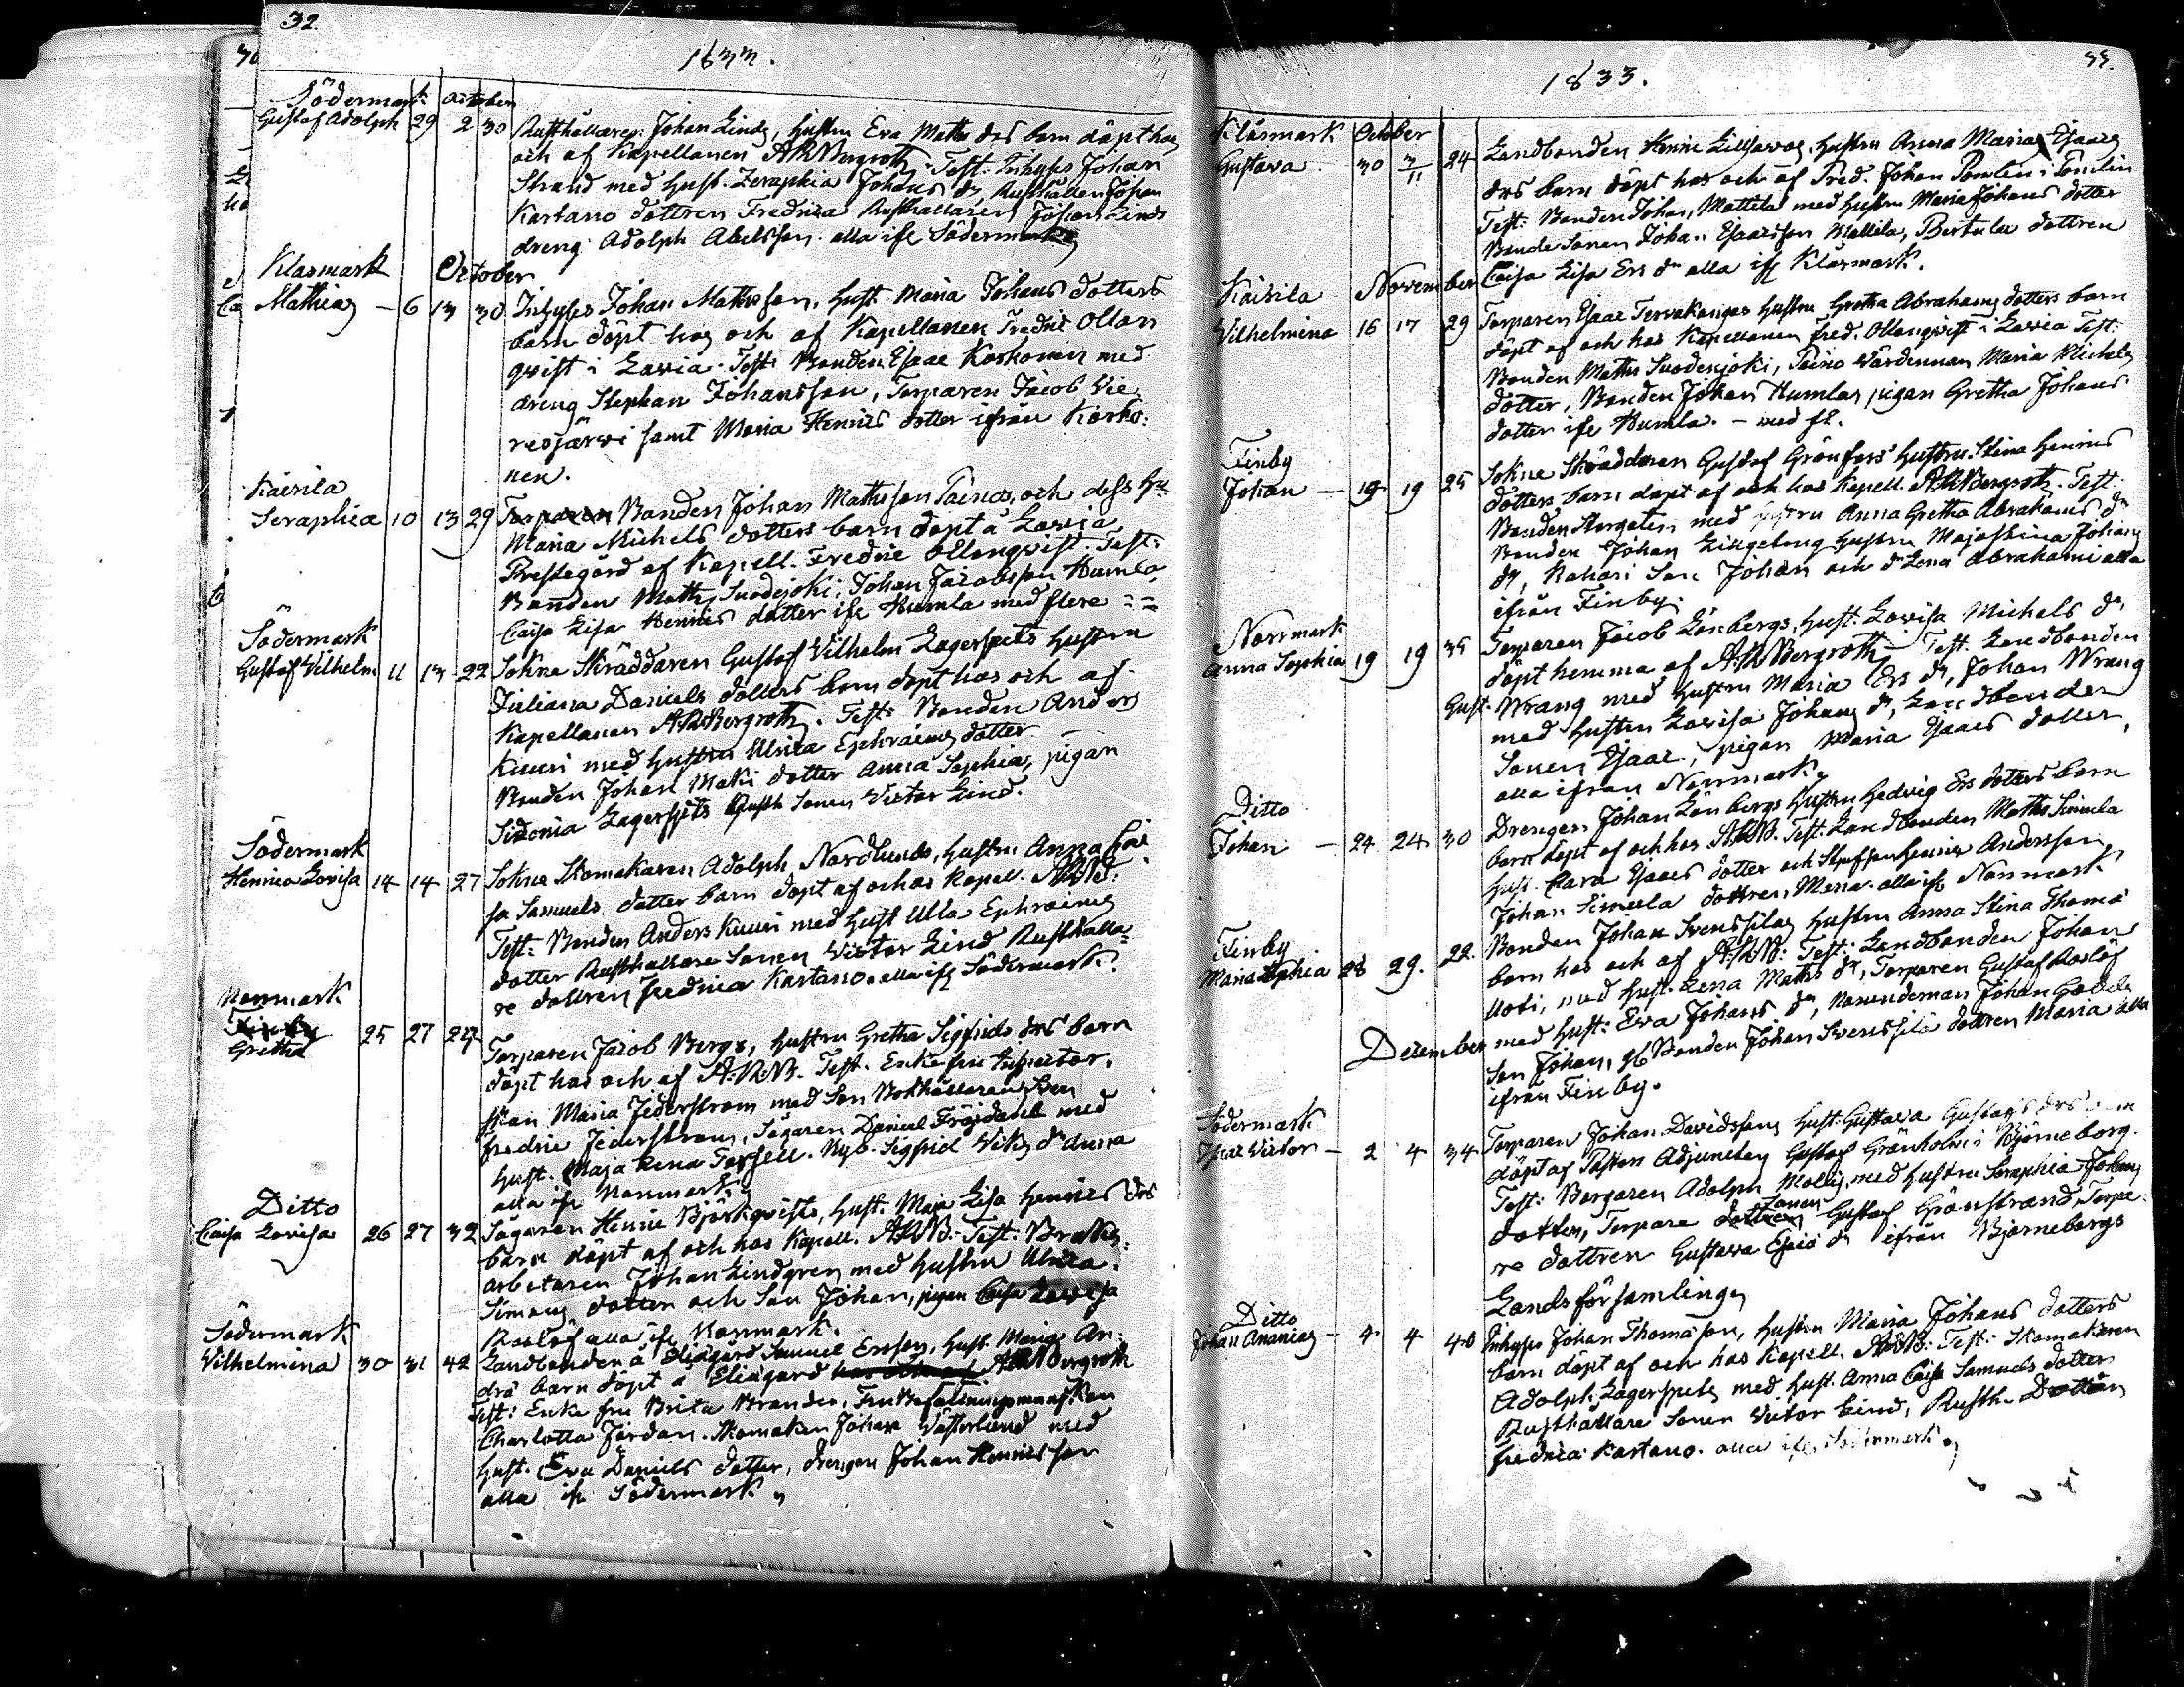 32.
1833.
Södermark October
Gustaf Adolph 29 2 30 Rusthållaren Johan Linds, hustru Eva Maths drs barn döpt hos
och af Kapellanen ARBergroth. Test: Inhyses Johan
Strand med hust. Zeraphia Johans dr, Rusthållaren Johan
Kartano dottren Fredrica Rusthållaren Johan Linds
dreng Adolph Abelsson. alla ifr Södermark
Klasmark October
Mathias - 6 13 30 Inhyses Johan Mathsson, hust. Maria Johans dotters
barn döpt hos och af Kapellanen Fredric Ollon
qvist i Lavia. Test: Bonden Esaac Koskonen med
dreng Stephan Johansson, Torparen Jacob Vie
resjärvi samt Maria Henrics dotter ifrån Kosko:
nen.
Kairila
Seraphia 10 13 29 Torparen Bonden Johan Mathsson Päinös, och dess hu
Maria Michels dotters barn döpt å Lavia
Prestegård af Kapell. Fredric Ollonqvist. Test:
Bonden Maths Suodejoki, Johan Jacobsson Humla,
Caisa Lisa Henrics dotter ifr Humla med flere
Södermark
Gustaf Vilhelm 11 13 22 Sokne Skräddaren Gustaf Vilhelm Lagerspets hustru
Juliana Daniels dotters barn döpt hos och af
Kapellanen ARBergroth. Test: Bonden Anders
Knuuri med hustru Ulrica Ephraims dotter
Bonden Johan Maki dotter Anna Sophia, pigan
Sidonia Lagerspets Rusth Sonen Victor Lind.
Södermark
Henrica Lovisa 14 14 27 Sokne Skomakaren Adolph Nordlunds, hustru Anna Cai
sa Samuels dotter barn döpt af och hos Kapell. ARB.
Test: Bonden Anders Knuuri med hust Ulla Ephraims
dotter Rusthållare Sonen Victor Lind Rusthålla=
re dottren Fredrica Kartano. alla ifr Södermark.
Norrmark
Finby
Gretha 25 27 27 Torparen Jacob Bergs, hustru Gretha Sigfrids drs barn
döpt hos och af A.R.B. Test. Enkefru Inspector.
skan Maria Jederström med Son Bokhållaren
Fredric Jederström, Sågaren Daniel Fröjdahl med
hust. Maja Lena Forsell. Nyb. Sigfrid Viks dr Anna
alla ifr Norrmark
Ditto
Caisa Lovisa 26 27 32 Sågaren Henric Björkqvists, hust. Maja Lisa Henrics drs
barn döpt af och hos Kapell. ARB. Test: Bruks
arbetaren Johan Lindgren med hustru Ulrica
Simons dotter och Son Johan, pigan Caisa Lovisa
Roslöf alla ifr Norrmark.
Södermark
Vilhelmina 30 31 42 Landbonden å Eliægård Samuel Ersson, hust. Maria An:
drs barn döpt å Eliægård ARBergroth
Test: Enke fru Brita Brander, Fru Befalningsmanskan
Charlotta Jordan. Skomakarn Johan Västerlund med
hust. Eva Daniels dotter, drengen Johan Henricsson
alla ifr Södermark
33.
1833.
Klåsmark October
Gustava 30 3/11 24 Landbonden Henric Liljavas, hustru Anna Maria Esaacs
drs barn döpt hos och af Pred. Johan Pomlin i Pomlin
Test: Bonden Johan, Mattila med hustru Maria Johans dotter
Bonde Sonen Johan Esaacsson Mattila, Pertula dottren
Caisa Lisa Ers dr alla ifr Klåsmark.
Kairila November
Vilhelmina 16 17 29 Torparen Esaac Tervakangas hustru Gretha Abrahams dotters barn
döpt af och hos Kapellanen Fred. Ollonqvist i Lavia Test:
Bonden Maths Suodenjoki, Päinö Värdinnan Maria Michels
dotter, Bonden Johan Humlas pigan Gretha Johans
dotter ifr Humla. - med fl.
Finby
Johan - 19 19 25 Sokne Skräddaren Gustaf Grönfors hustru Stina Henrics
dotters barn döpt af och hos Kapell. ARBergroth. Test:
Bonden Storgeten med hustru Anna Gretha Abrahams dr
Bonden Johan Lillgetings hustru Maja Stina Johans
dr, Kahari Son Johan och dr Lena Abrahami alla
ifrån Finby.
Norrmark
Anna Sophia 19 19 35 Torparen Jacob Lönbergs, hust. Lovisa Michels dr
döpt hemma af ARBergroth - Test. Landbonden
Gust. Wrang med hustru Maria Ers dr, Johan Wrang
med hustru Lovisa Johans dr, Landbonden
Sonen Esaac, pigan Maria Esaacs dotter,
alla ifrån Norrmark
Ditto
Johan - 24 24 30 Drengen Johan Lönbergs hustru Hedvig Ers dotters barn
barn döpt af och hos ARB. Test: Landbonden Maths Simula
hust. Clara Esaacs dotter och Styfson Henric Andersson,
Johan Simula dottren Maria. alla ifr Norrmark
Finby
Maria Sophia 28 29. 22. Bonden Johan Svenssilas hustru Anna Stina Thomæ
barn hos och af ARB. Test: Landbonden Johan
Uoti, med hust. Lena Maths dr, Torparen Gustaf Roslöf
December med hust: Eva Johans dr, Johan
Son Johan, Bonden Johan Svenssila dottren Maria alla
ifrån Finby.
Södermark
Victor - 2 4 34 Torparen Johan Davidssons hust: Gustava Gustafs drs
döpt af Pastors Adjuncten Gustaf Grönholm i Björneborg.
Test: Borgaren Adolph Mollis, med hustru Seraphia Johans
dotter, Torpare dottren Sonen Gustaf Grönstrand Torpa:
re dottren Gustava Esaiæ dr ifrån Björneborgs
Landsförsamling
Ditto
Johan Ananias - 4 4 40 Inhyses Johan Thomasson, hustru Maria Johans dotters
barn döpt af och hos Kapell. ARB: Test: Skomakaren
Adolph Lagerspets med hust. Anna Caisa Samuels dotter
Rusthållare Sonen Victor Lind, Rusth. Dottren
Fredrica Kartano. alla ifr Södermark